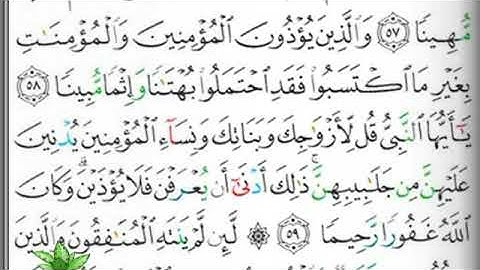 مُّهِينًا ﴿٥٧﴾ وَٱلَّذِينَ يُؤْذُونَ ٱلْمُؤْمِنِينَ وَٱلْمُؤْمِنَٰتِ
بِغَيْرِ مَا ٱكْتَسَبُوا۟ فَقَدِ ٱحْتَمَلُوا۟ بُهْتَٰنًا وَإِثْمًا مُّبِينًا ﴿٥٨﴾
يَٰٓأَيُّهَا ٱلنَّبِىُّ قُل لِّأَزْوَٰجِكَ وَبَنَاتِكَ وَنِسَآءِ ٱلْمُؤْمِنِينَ يُدْنِينَ
عَلَيْهِنَّ مِن جَلَٰبِيبِهِنَّ ۚ ذَٰلِكَ أَدْنَىٰٓ أَن يُعْرَفْنَ فَلَا يُؤْذَيْنَ ۗ وَكَانَ
ٱللَّهُ غَفُورًا رَّحِيمًا ﴿٥٩﴾ ۞ لَّئِن لَّمْ يَنتَهِ ٱلْمُنَٰفِقُونَ وَٱلَّذِينَ